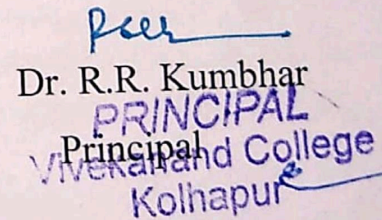 Dr. R.R. Kumbhar
PRINCIPAL
Principal
Vivekanand College
Kolhapur